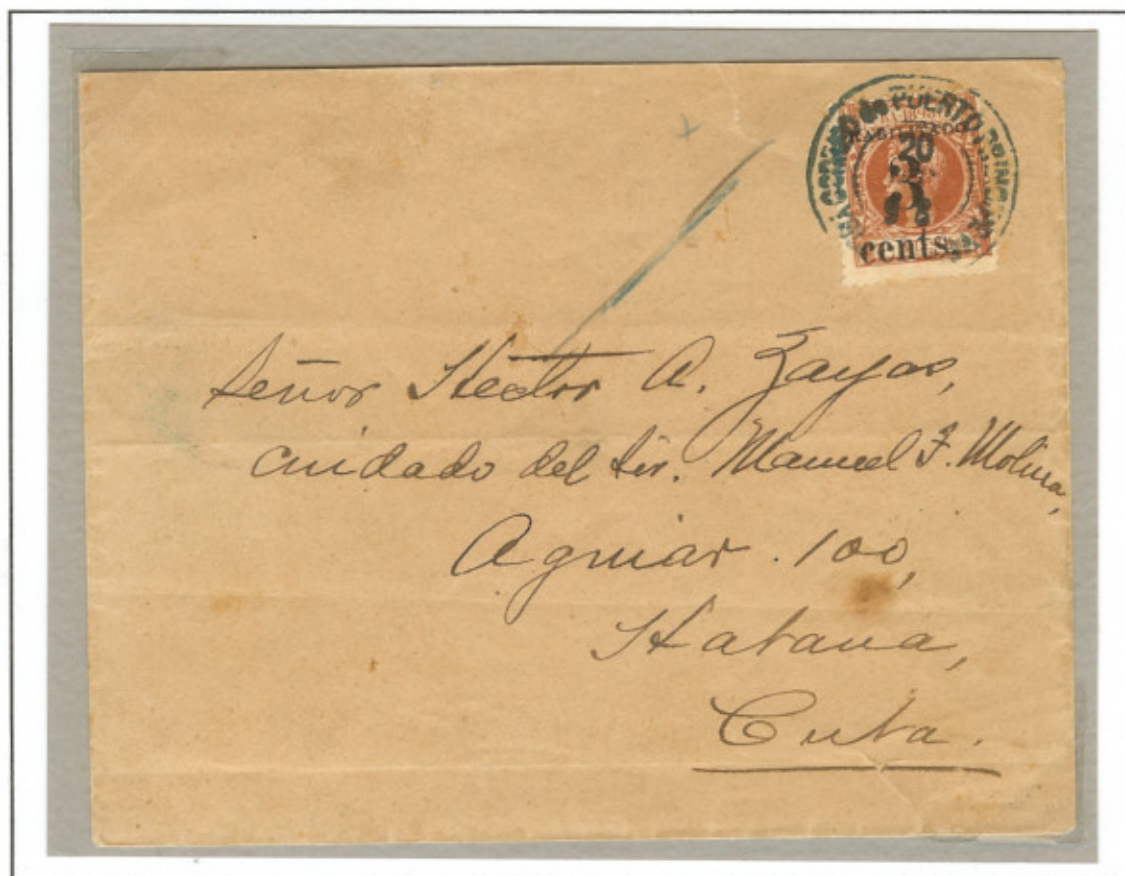 CORREO DE PUERTO PRINCIPE
20
3
cents.
Señor Hector A. Zayas,
cuidado del Sr. Manuel F. Molina,
Aguiar . 100,
Habana,
Cuba.